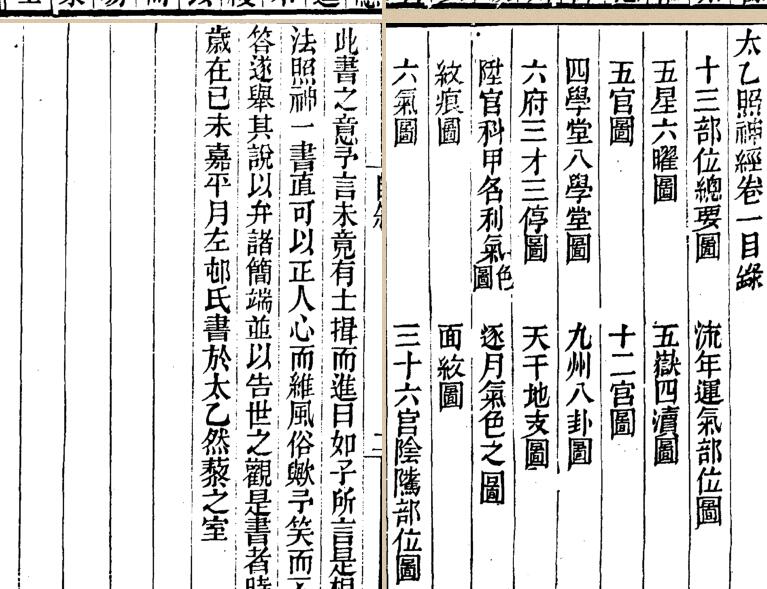 太乙照神經卷一目錄
十三部位總要圖　流年運氣部位圖
五星六曜圖　五嶽四瀆圖
五官圖　十二宮圖
四學堂八學堂圖　九州八卦圖
六府三才三停圖　天干地支圖
陞官科甲名利氣色圖　逐月氣色之圖
紋痕圖　面紋圖
六氣圖　三十六宮陰隲部位圖
此書之意予言未竟有士揖而進曰如子所言是相
法照神一書直可以正人心而維風俗歟予笑而
答遂舉其說以弁諸簡端並以告世之觀是書者時
歲在已未嘉平月左邨氏書於太乙然藜之室